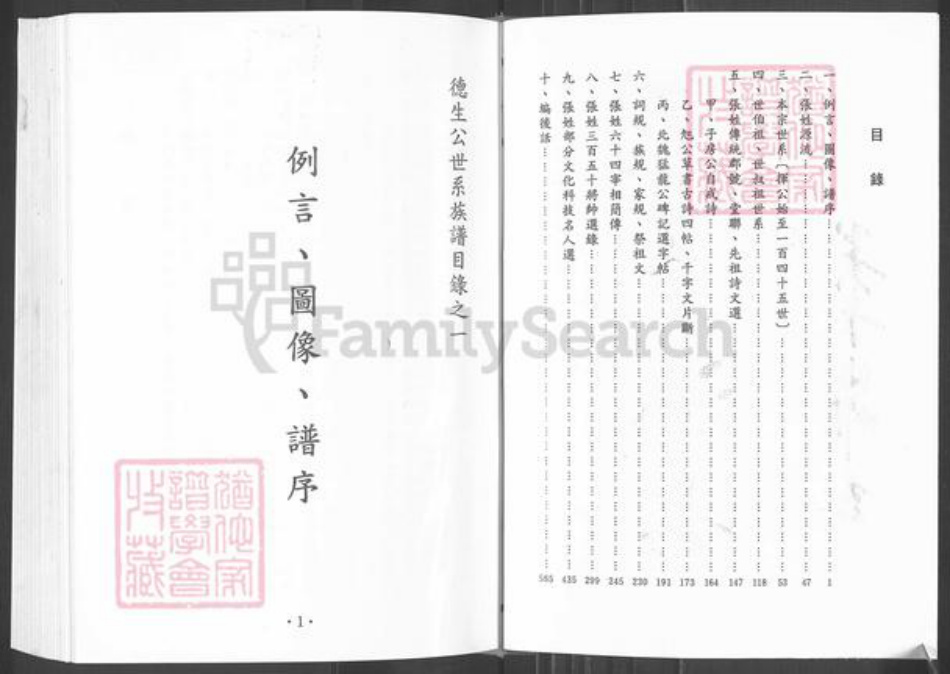 目錄
一、例言、圖像、譜序 1
二、張姓源流 47
三、本宗世系〔揮公始至一百四十五世〕 53
四、世伯祖、世叔祖世系 118
五、張姓傳統郡號、堂聯、先祖詩文選 147
甲、子房公自戒詩 164
乙、旭公草書古詩四帖、千字文片斷 173
丙、北魏猛龍公碑記選字帖 191
六、詞規、族規、家規、祭祖文 230
七、張姓六十四宰相簡傳 245
八、張姓三百五十將帥選錄 299
九、張姓部分文化科技名人選 435
十、編後話 585
德生公世系族譜目錄之一
例言、圖像、譜序
·1·
猶他家
譜學會
收藏
FamilySearch